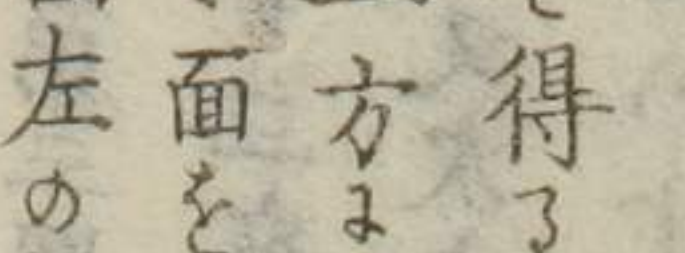 得る
方に
面を
左の